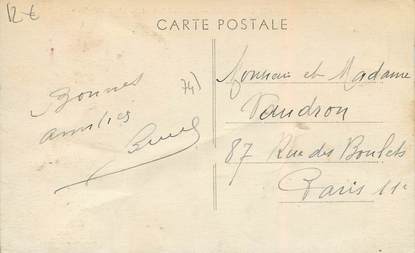 12€
CARTE POSTALE
Bonnes
amitiés
74)
Monsieur et Madame
Vaudron
87 Rue des Boulets
Paris 11e